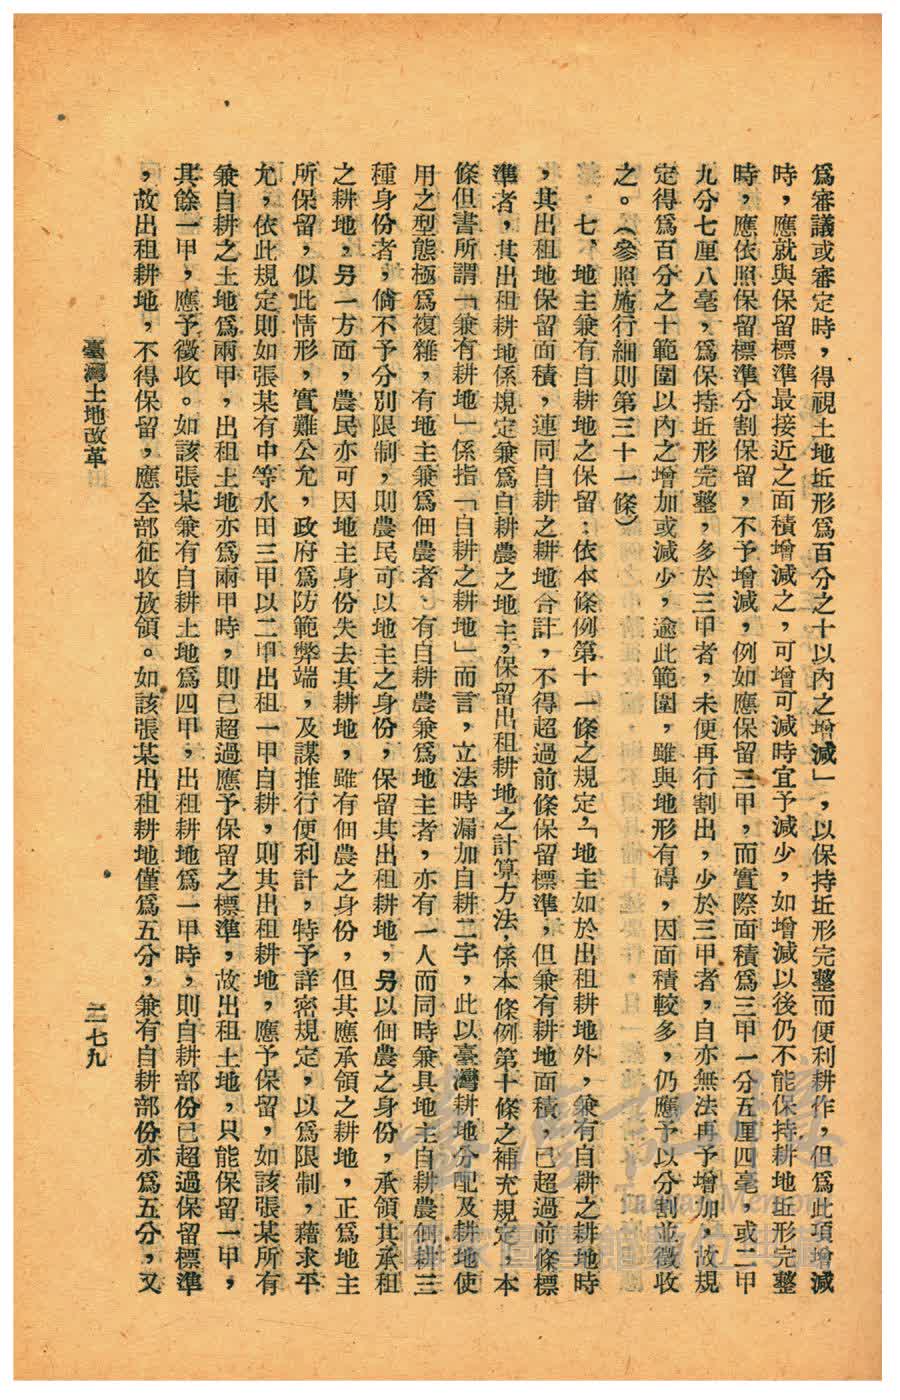 為審議或審定時，得視土地坵形為百分之十以內之增減」，以保持坵形完整而便利耕作，但為此項增減
時，應就與保留標準最接近之面積增減之，可增可減時宜予減少，如增減以後仍不能保持耕地坵形完整
時，應依照保留標準分割保留，不予增減，例如應保留三甲，而實際面積為三甲一分五厘四毫，或二甲
九分七厘八毫，為保持坵形完整，多於三甲者，未便再行割出，少於三甲者，自亦無法再予增加，故規
定得為百分之十範圍以內之增加或減少，逾此範圍，雖與地形有碍，因面積較多，仍應予以分割並徵收
之。（參照施行細則第三十一條）
七、地主兼有自耕地之保留：依本條例第十一條之規定，「地主如於出租耕地外，兼有自耕之耕地時
，其出租地保留面積，連同自耕之耕地合計，不得超過前條保留標準，但兼有耕地面積，已超過前條標
準者，其出租耕地係規定兼為自耕農之地主，保留出租耕地之計算方法，係本條例第十條之補充規定，本
條但書所謂「兼有耕地」係指「自耕之耕地」而言，立法時漏加自耕二字，此以臺灣耕地分配及耕地使
用之型態極為複雜，有地主兼為佃農者、有自耕農兼為地主者，亦有一人而同時兼具地主自耕農佃耕三
種身份者，倘不予分別限制，則農民可以地主之身份，保留其出租耕地，另以佃農之身份，承領其承租
之耕地，另一方面，農民亦可因地主身份失去其耕地，雖有佃農之身份，但其應承領之耕地，正為地主
所保留，似此情形，實難公允，政府為防範弊端，及謀推行便利計，特予詳密規定，以為限制，藉求平
允，依此規定則如張某有中等水田三甲以二甲出租一甲自耕，則其出租耕地，應予保留，如該張某所有
兼自耕之土地為兩甲，出租土地亦為兩甲時，則已超過應予保留之標準，故出租土地，只能保留一甲，
其餘一甲，應予徵收。如該張某兼有自耕土地為四甲，出租耕地為一甲時，則自耕部份已超過保留標準
，故出租耕地，不得保留，應全部征收放領。如該張某出租耕地僅為五分，兼有自耕部份亦為五分，又
臺灣土地改革
二七九
臺灣記憶
Taiwan Memory
國家圖書館數位典藏